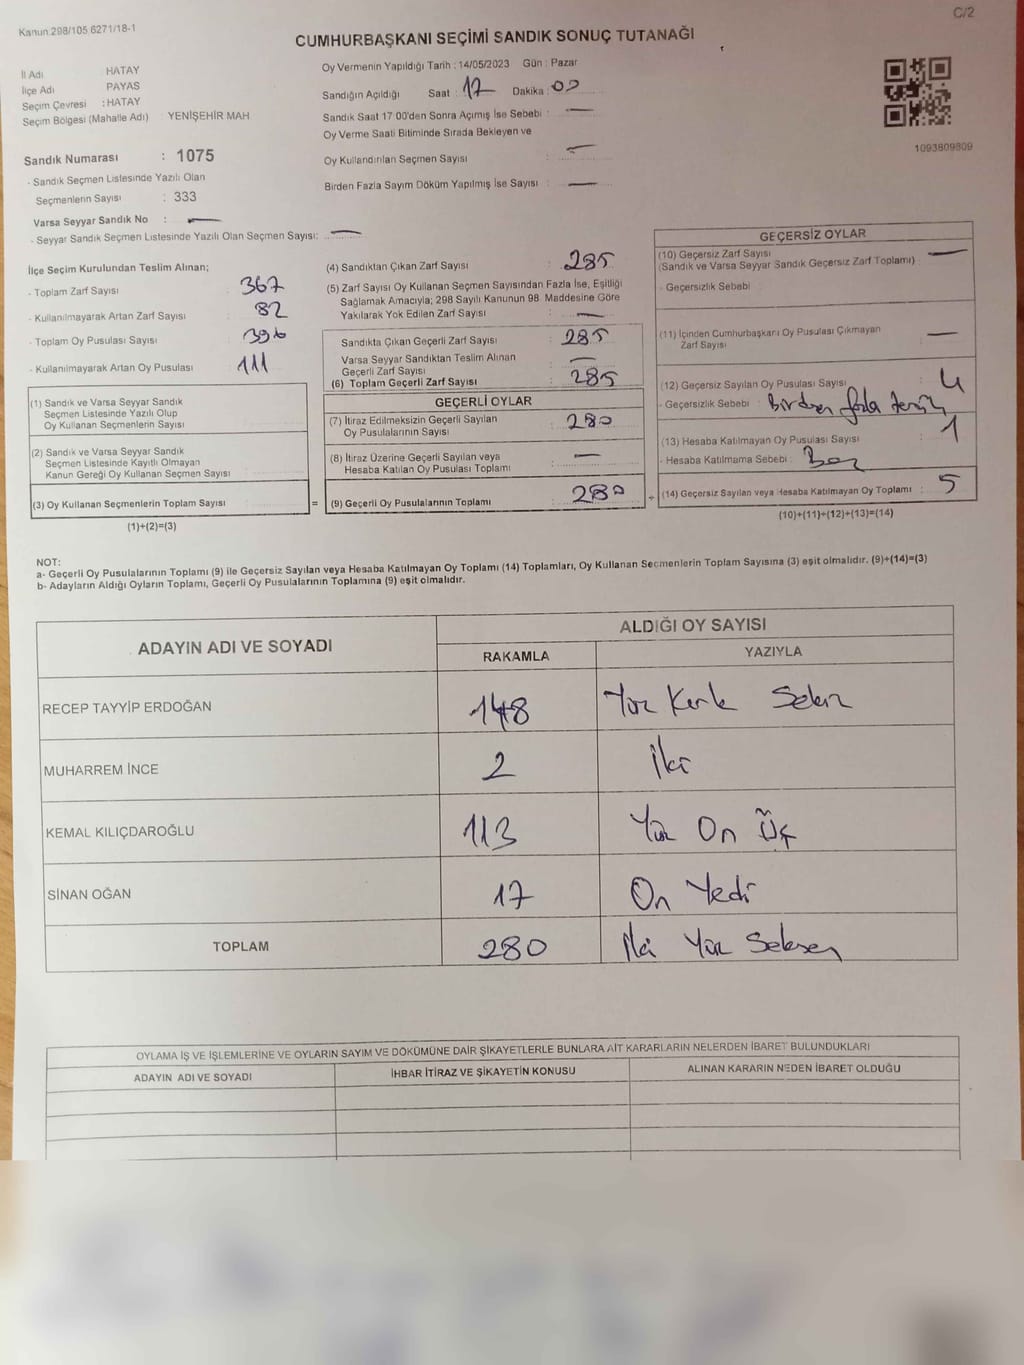 Kanun.298/105.6271/18-1
C/2
CUMHURBAŞKANI SEÇİMİ SANDIK SONUÇ TUTANAĞI
İl Adı HATAY
İlçe Adı PAYAS
Seçim Çevresi : HATAY
Seçim Bölgesi (Mahalle Adı) : YENİŞEHİR MAH
Sandık Numarası : 1075
- Sandık Seçmen Listesinde Yazılı Olan
Seçmenlerin Sayısı : 333
Varsa Seyyar Sandık No : —
- Seyyar Sandık Seçmen Listesinde Yazılı Olan Seçmen Sayısı: —
Oy Vermenin Yapıldığı Tarih : 14/05/2023 Gün : Pazar
Sandığın Açıldığı Saat : 17 Dakika : 00
Sandık Saat 17 00'den Sonra Açımış İse Sebebi : —
Oy Verme Saati Bitiminde Sırada Bekleyen ve
Oy Kullandırılan Seçmen Sayısı : —
Birden Fazla Sayım Döküm Yapılmış İse Sayısı : —
1093809809
İlçe Seçim Kurulundan Teslim Alınan;
- Toplam Zarf Sayısı : 367
- Kullanılmayarak Artan Zarf Sayısı : 82
- Toplam Oy Pusulası Sayısı : 396
- Kullanılmayarak Artan Oy Pusulası : 111
(1) Sandık ve Varsa Seyyar Sandık
Seçmen Listesinde Yazılı Olup
Oy Kullanan Seçmenlerin Sayısı
(2) Sandık ve Varsa Seyyar Sandık
Seçmen Listesinde Kayıtlı Olmayan
Kanun Gereği Oy Kullanan Seçmen Sayısı
(3) Oy Kullanan Seçmenlerin Toplam Sayısı
(1)+(2)=(3)
(4) Sandıktan Çıkan Zarf Sayısı : 285
(5) Zarf Sayısı Oy Kullanan Seçmen Sayısından Fazla İse, Eşitliği
Sağlamak Amacıyla; 298 Sayılı Kanunun 98. Maddesine Göre
Yakılarak Yok Edilen Zarf Sayısı : —
Sandıkta Çıkan Geçerli Zarf Sayısı : 285
Varsa Seyyar Sandıktan Teslim Alınan
Geçerli Zarf Sayısı : —
(6) Toplam Geçerli Zarf Sayısı : 285
GEÇERLİ OYLAR
(7) İtiraz Edilmeksizin Geçerli Sayılan
Oy Pusulalarının Sayısı : 280
(8) İtiraz Üzerine Geçerli Sayılan veya
Hesaba Katılan Oy Pusulası Toplamı : —
= (9) Geçerli Oy Pusulalarının Toplamı : 280
GEÇERSİZ OYLAR
(10) Geçersiz Zarf Sayısı
(Sandık ve Varsa Seyyar Sandık Geçersiz Zarf Toplamı) : —
- Geçersizlik Sebebi :
(11) İçinden Cumhurbaşkanı Oy Pusulası Çıkmayan
Zarf Sayısı : —
(12) Geçersiz Sayılan Oy Pusulası Sayısı : 4
- Geçersizlik Sebebi : Birden fazla
(13) Hesaba Katılmayan Oy Pusulası Sayısı : 1
- Hesaba Katılmama Sebebi :
+ (14) Geçersiz Sayılan veya Hesaba Katılmayan Oy Toplamı : 5
(10)+(11)+(12)+(13)=(14)
NOT:
a- Geçerli Oy Pusulalarının Toplamı (9) ile Geçersiz Sayılan veya Hesaba Katılmayan Oy Toplamı (14) Toplamları, Oy Kullanan Seçmenlerin Toplam Sayısına (3) eşit olmalıdır. (9)+(14)=(3)
b- Adayların Aldığı Oyların Toplamı, Geçerli Oy Pusulalarının Toplamına (9) eşit olmalıdır.
ADAYIN ADI VE SOYADI
ALDIĞI OY SAYISI
RAKAMLA YAZIYLA
RECEP TAYYİP ERDOĞAN 148 Yüz Kırk Sekiz
MUHARREM İNCE 2 İki
KEMAL KILIÇDAROĞLU 113 Yüz On Üç
SİNAN OĞAN 17 On Yedi
TOPLAM 280 İki Yüz Seksen
OYLAMA İŞ VE İŞLEMLERİNE VE OYLARIN SAYIM VE DÖKÜMÜNE DAİR ŞİKAYETLERLE BUNLARA AİT KARARLARIN NELERDEN İBARET BULUNDUKLARI
ADAYIN ADI VE SOYADI İHBAR İTİRAZ VE ŞİKAYETİN KONUSU ALINAN KARARIN NEDEN İBARET OLDUĞU